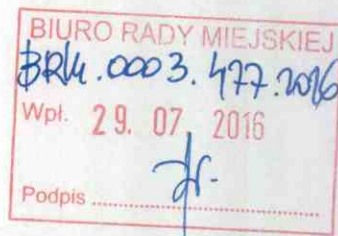 BIURO RADY MIEJSKIEJ
BRM.0003.477.2016
Wpł. 29. 07. 2016
Podpis